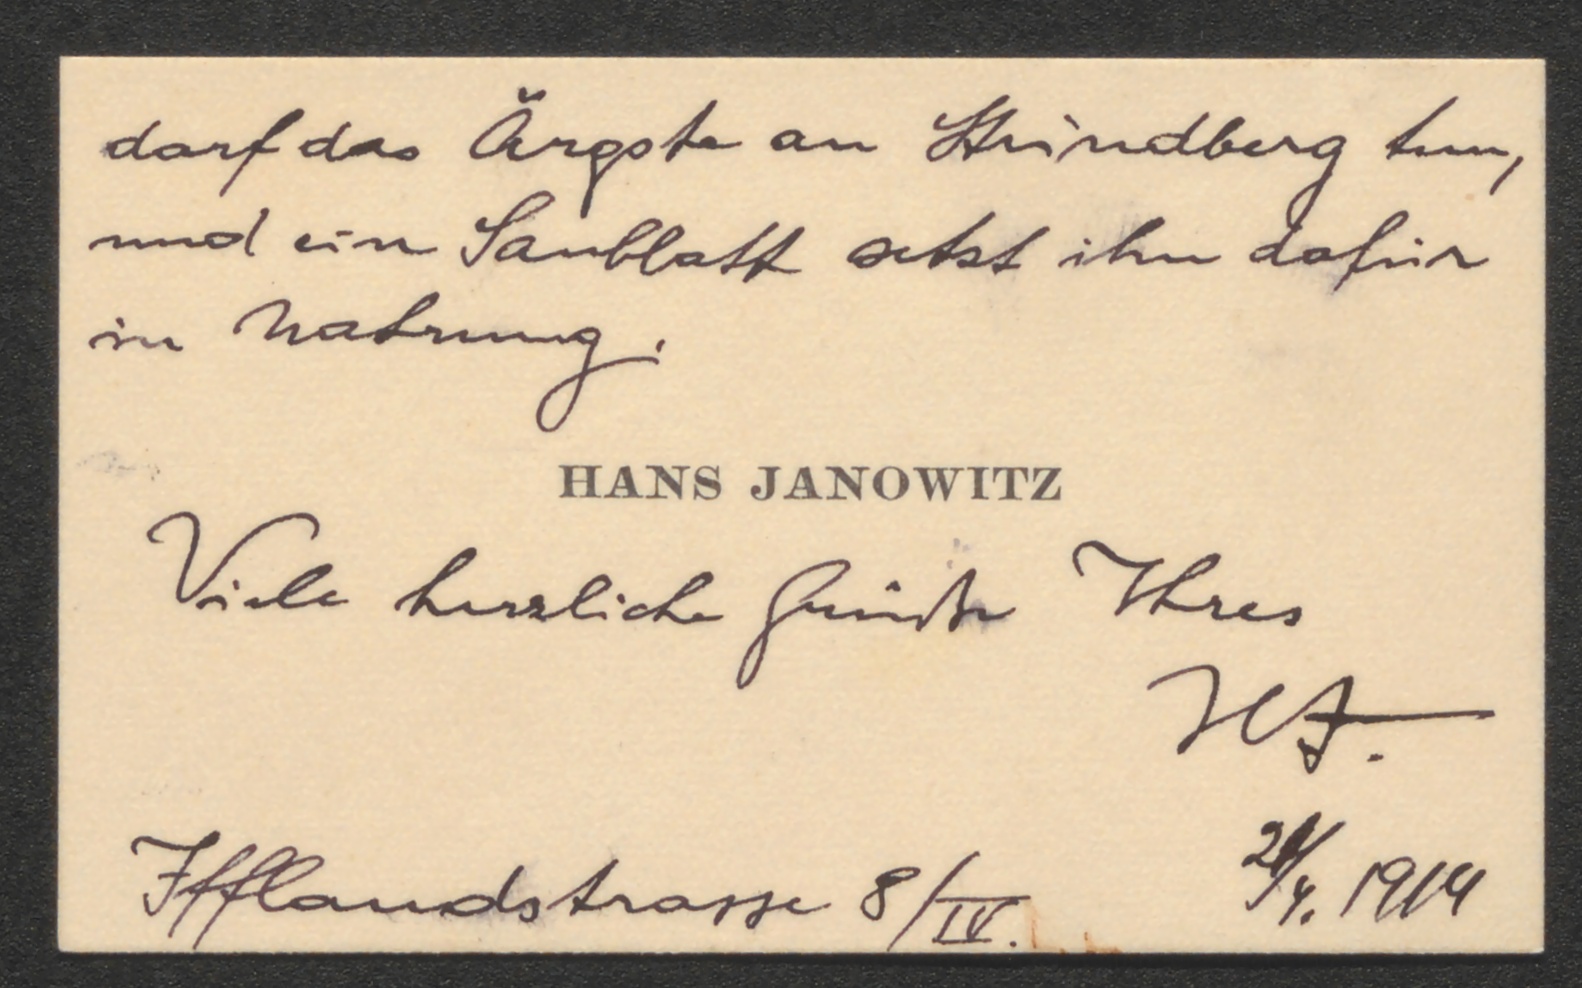 darf das Ärgste an Strindberg tun,
und ein Saublatt setzt ihn dafür
in Nahrung.
HANS JANOWITZ
Viele herzliche Grüße Ihres
HJ.
Ifflandstrasse 8/IV. /4. 1914